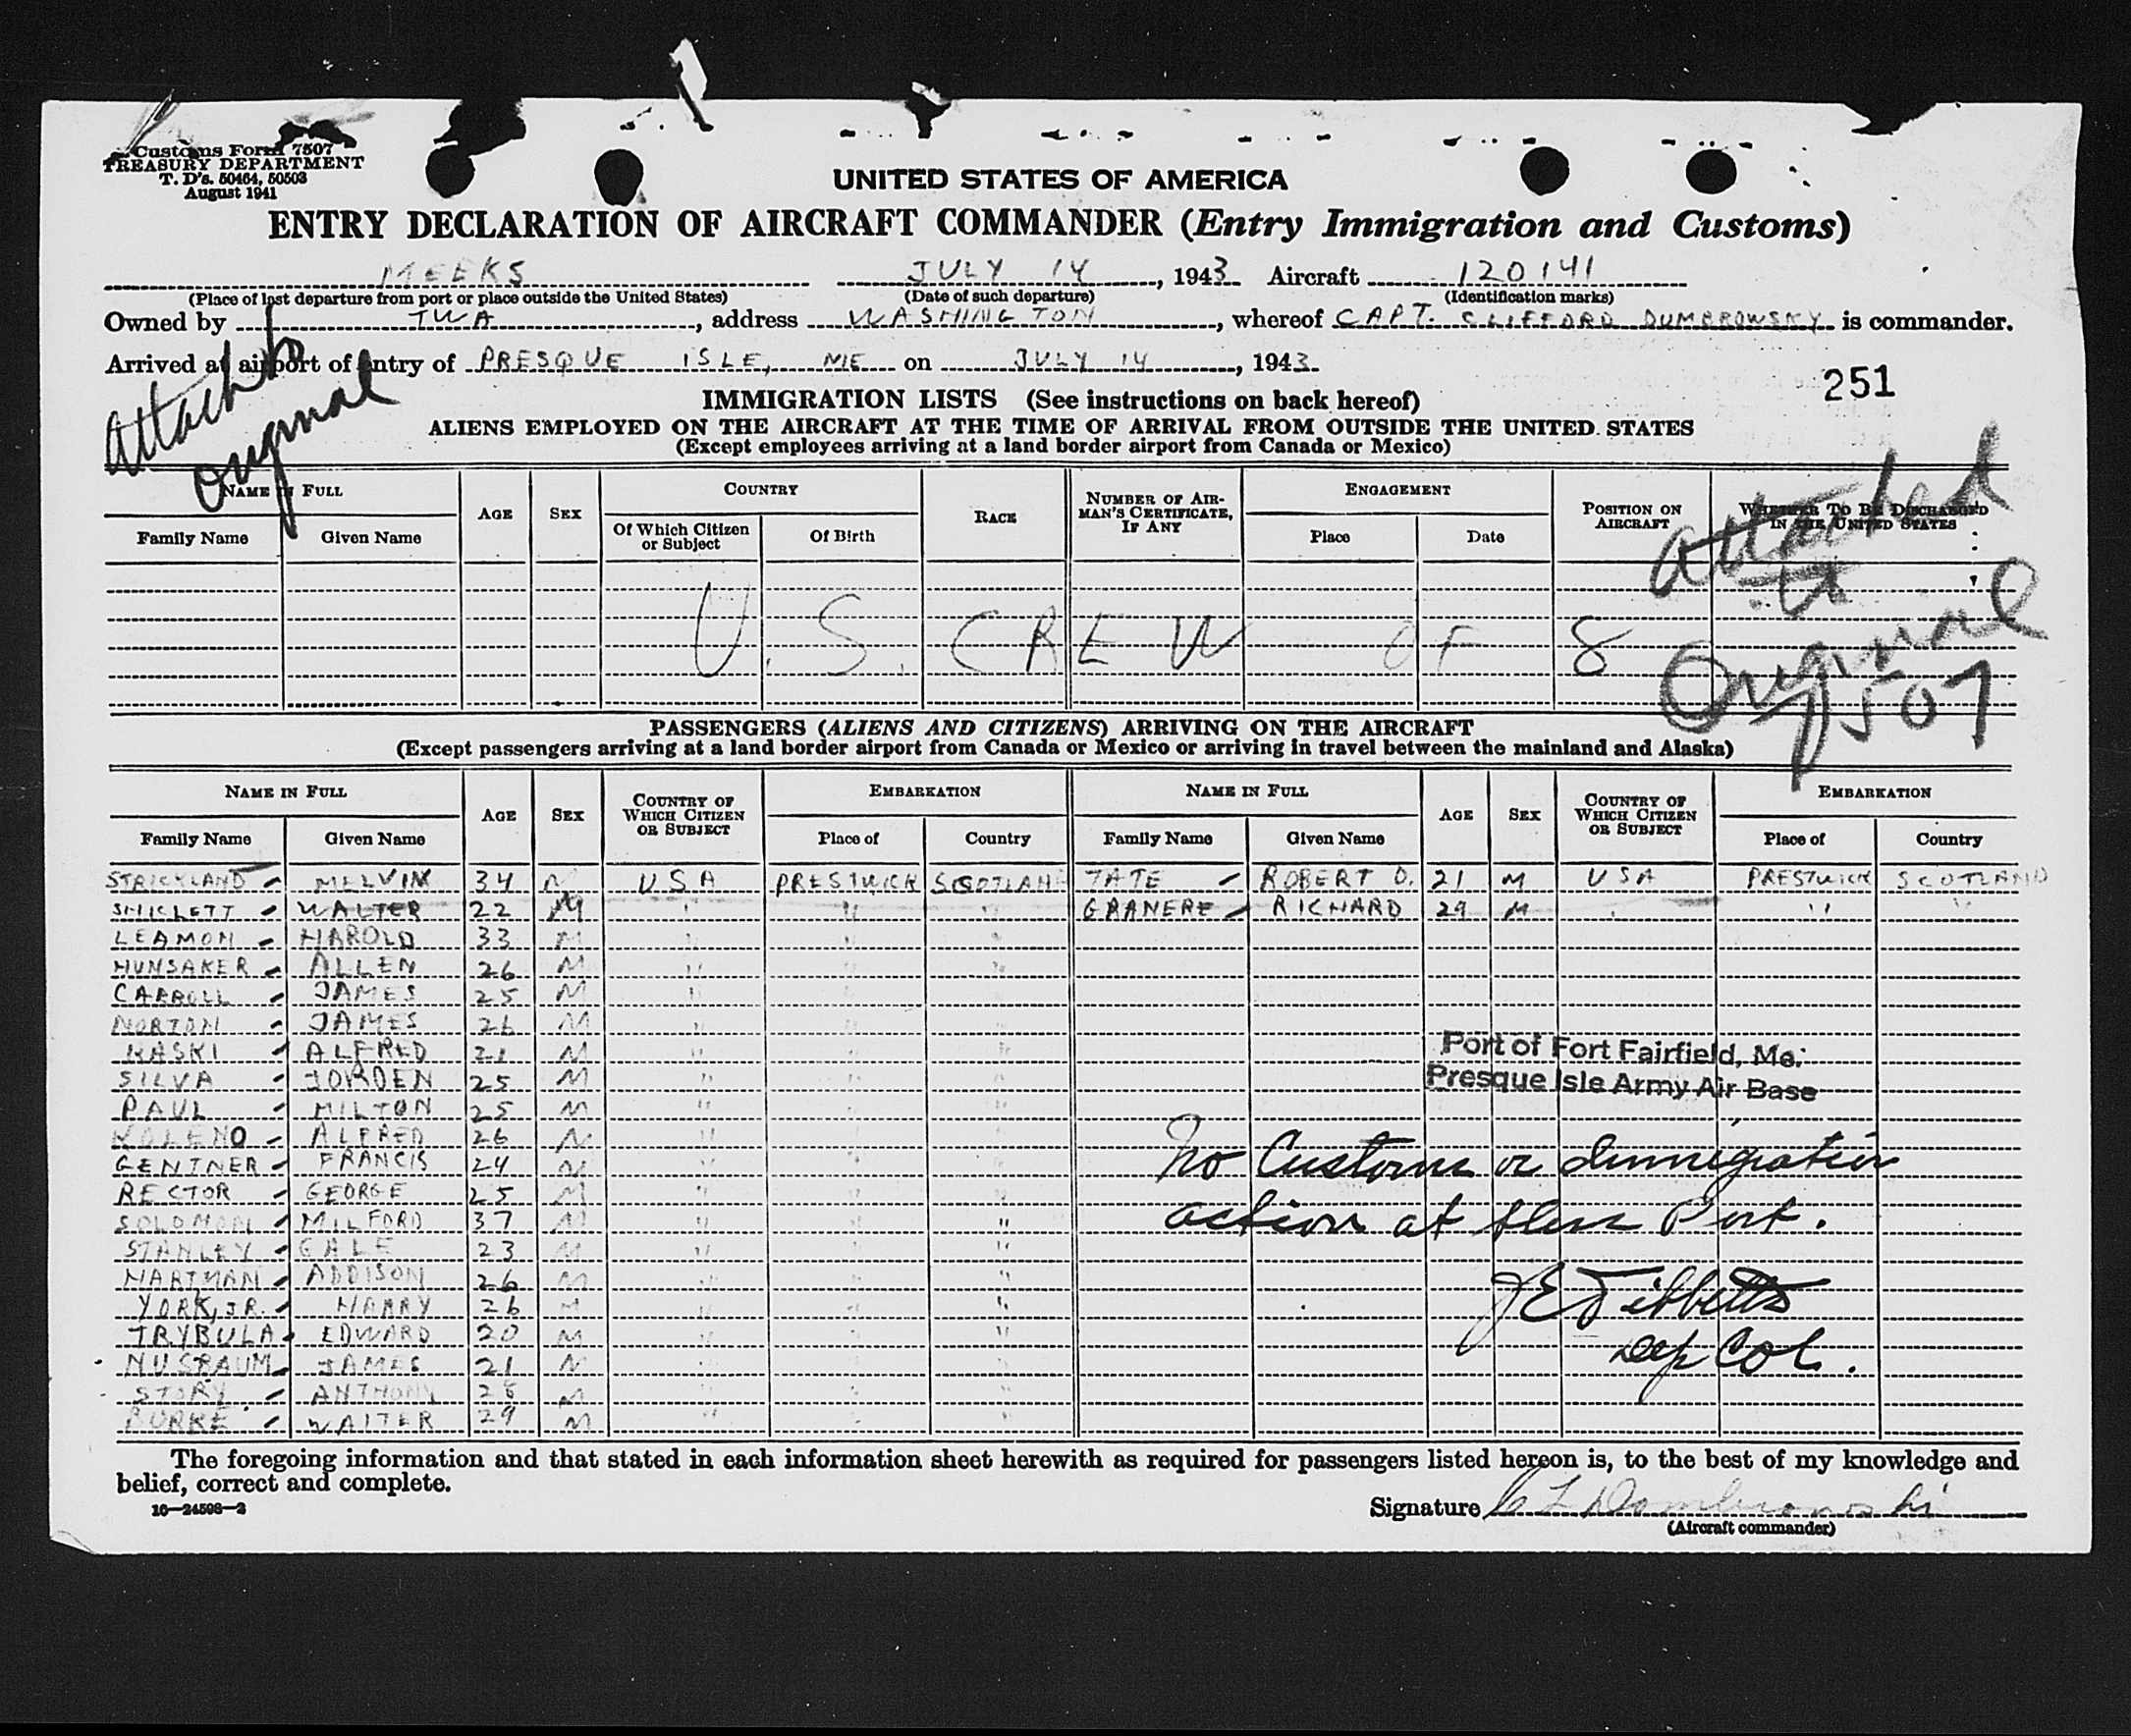 Customs Form 7507
TREASURY DEPARTMENT
T. D's. 50464, 50503
August 1941
UNITED STATES OF AMERICA
ENTRY DECLARATION OF AIRCRAFT COMMANDER (Entry Immigration and Customs)
MEEKS JULY 14, 1943 Aircraft 120141
(Place of last departure from port or place outside the United States) (Date of such departure) (Identification marks)
Owned by TWA, address WASHINGTON, whereof CAPT. CLIFFORD DUMBROWSKY is commander.
Arrived at airport of entry of PRESQUE ISLE, ME on JULY 14, 1943
251
Attach to
Original
IMMIGRATION LISTS (See instructions on back hereof)
ALIENS EMPLOYED ON THE AIRCRAFT AT THE TIME OF ARRIVAL FROM OUTSIDE THE UNITED STATES
(Except employees arriving at a land border airport from Canada or Mexico)
NAME IN FULL AGE SEX COUNTRY RACE NUMBER OF AIRMAN'S CERTIFICATE, IF ANY ENGAGEMENT POSITION ON AIRCRAFT WHETHER TO BE DISCHARGED IN THE UNITED STATES
Family Name Given Name Of Which Citizen or Subject Of Birth Place Date
U. S. CREW OF 8
Attached
to
Original
507
PASSENGERS (ALIENS AND CITIZENS) ARRIVING ON THE AIRCRAFT
(Except passengers arriving at a land border airport from Canada or Mexico or arriving in travel between the mainland and Alaska)
NAME IN FULL AGE SEX COUNTRY OF WHICH CITIZEN OR SUBJECT EMBARKATION NAME IN FULL AGE SEX COUNTRY OF WHICH CITIZEN OR SUBJECT EMBARKATION
Family Name Given Name Place of Country Family Name Given Name Place of Country
STRICKLAND - MELVIN 34 M USA PRESTWICK SCOTLAND TATE - ROBERT O. 21 M USA PRESTWICK SCOTLAND
SHICLETT - WALTER 22 M " " " GRANERE - RICHARD 29 M " " "
LEAMON - HAROLD 33 M " " "
HUNSAKER - ALLEN 26 M " " "
CARROLL - JAMES 25 M " " "
NORTON - JAMES 26 M " " "
KASKI - ALFRED 21 M " " "
SILVA - JORDEN 25 M " " "
PAUL - MILTON 25 M " " "
ALFRED 26 M " " "
GENTNER - FRANCIS 24 M " " "
RECTOR - GEORGE 25 M " " "
SOLOMON - MILFORD 37 M " " "
STANLEY - GALE 23 M " " "
HARTMAN - ADDISON 26 M " " "
YORK, JR. - HARRY 26 M " " "
TRYBULA - EDWARD 20 M " " "
NUSBAUM - JAMES 21 M " " "
STORY - ANTHONY 28 M " " "
BURKE - WALTER 29 M " " "
Port of Fort Fairfield, Me.
Presque Isle Army Air Base
No Customs or Immigration
action at this Port.
J E Tibbetts
Dep Col.
The foregoing information and that stated in each information sheet herewith as required for passengers listed hereon is, to the best of my knowledge and
belief, correct and complete.
16—24508-2
Signature C L Dombrowski
(Aircraft commander)